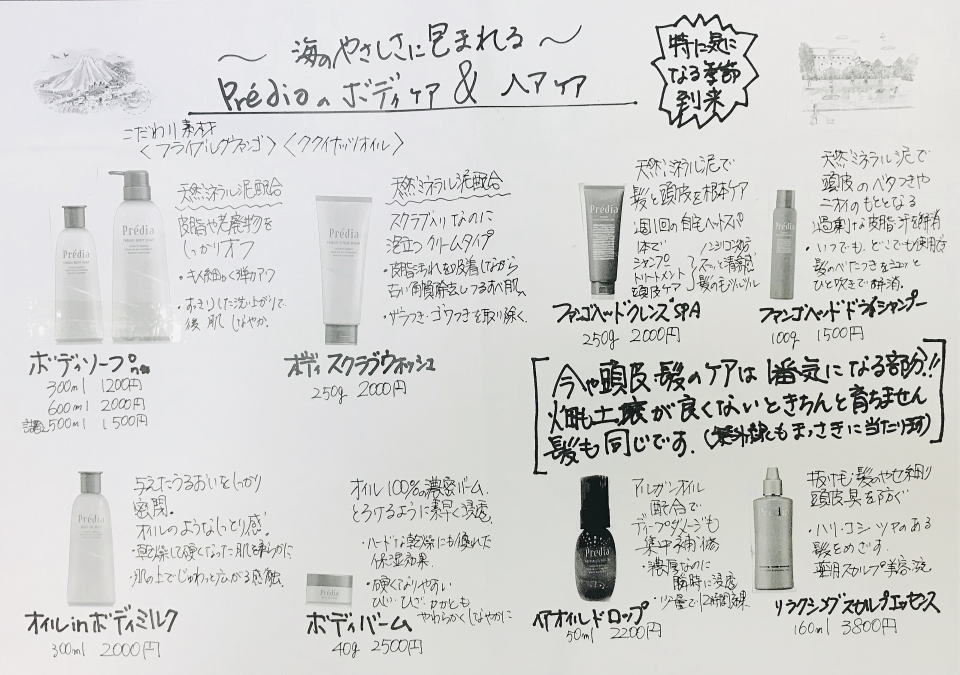 ～ 海のやさしさに包まれる ～
Prédiaの ボディケア & ヘアケア
特に気に
なる季節
到来
こだわり素材
〈ファンゴ〉〈ククイナッツオイル〉
天然ミネラル泥配合
皮脂や老廃物を
しっかりオフ
・すっきりした洗い上がりで、
後肌しなやか。
ボディソープ
300ml 1200円
600ml 2000円
500ml 1500円
天然ミネラル泥配合
スクラブ入りなのに
泡立つクリームタイプ
・皮脂汚れを吸着しながら
古い角質除去しつるすべ肌。
・ザラつき・ゴワつきを取り除く。
ボディスクラブウォッシュ
250g 2000円
天然ミネラル泥で
髪と頭皮を根本ケア
週1回の自宅ヘッドスパ
1本で
シャンプー
トリートメント
頭皮ケア
ノンシリコン処方
スーッと清涼感
髪のもツルツル
ファンゴヘッドクレンズSPA
250g 2000円
天然ミネラル泥で
頭皮のベタつきや
ニオイのもととなる
過剰な皮脂・汗を解消
・いつでも、どこでも使用OK
髪のべたつきをシュッと
ひと吹きで解消。
ファンゴヘッドドライシャンプー
100g 1500円
今や頭皮・髪のケアは1番気になる部分!!
畑も土壌が良くないときちんと育ちません
髪も同じです。(紫外線もまっさきに当たります)
与えたうるおいをしっかり
密閉。
オイルのようなしっとり感。
・乾燥して硬くなった肌を柔らかに
・肌の上でじゅわっと広がる感触。
オイルinボディミルク
300ml 2000円
オイル100%の濃密バーム。
とろけるように素早く浸透。
・ハードな乾燥にも優れた
保湿効果。
・硬くなりやすい
ひじ・ひざ・かかとも
やわらかくしなやかに
ボディバーム
40g 2500円
アルガンオイル
配合で
ディープダメージも
集中補修
・濃厚なのに
瞬時に浸透
・少量で12時間効果
ヘアオイルドロップ
50ml 2200円
抜け毛・髪のやせ細り
頭皮臭を防ぐ
・ハリ・コシ・ツヤのある
髪をめざす。
薬用スカルプ美容液
リラクシングスカルプエッセンス
160ml 3800円